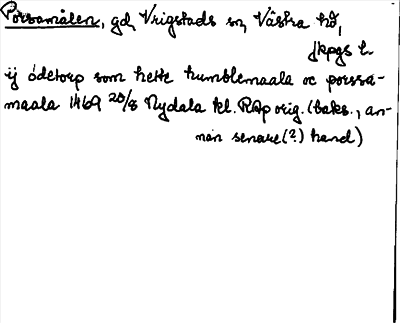 Porsamålen, gd, Vrigstads sn, Västra hd,
Jkpgs l.
ij ödetorp som hette humblemaala oc porssa-
maala 1469 20/8 Nydala kl. RAp orig. (baks., an-
nan senare(?) hand)